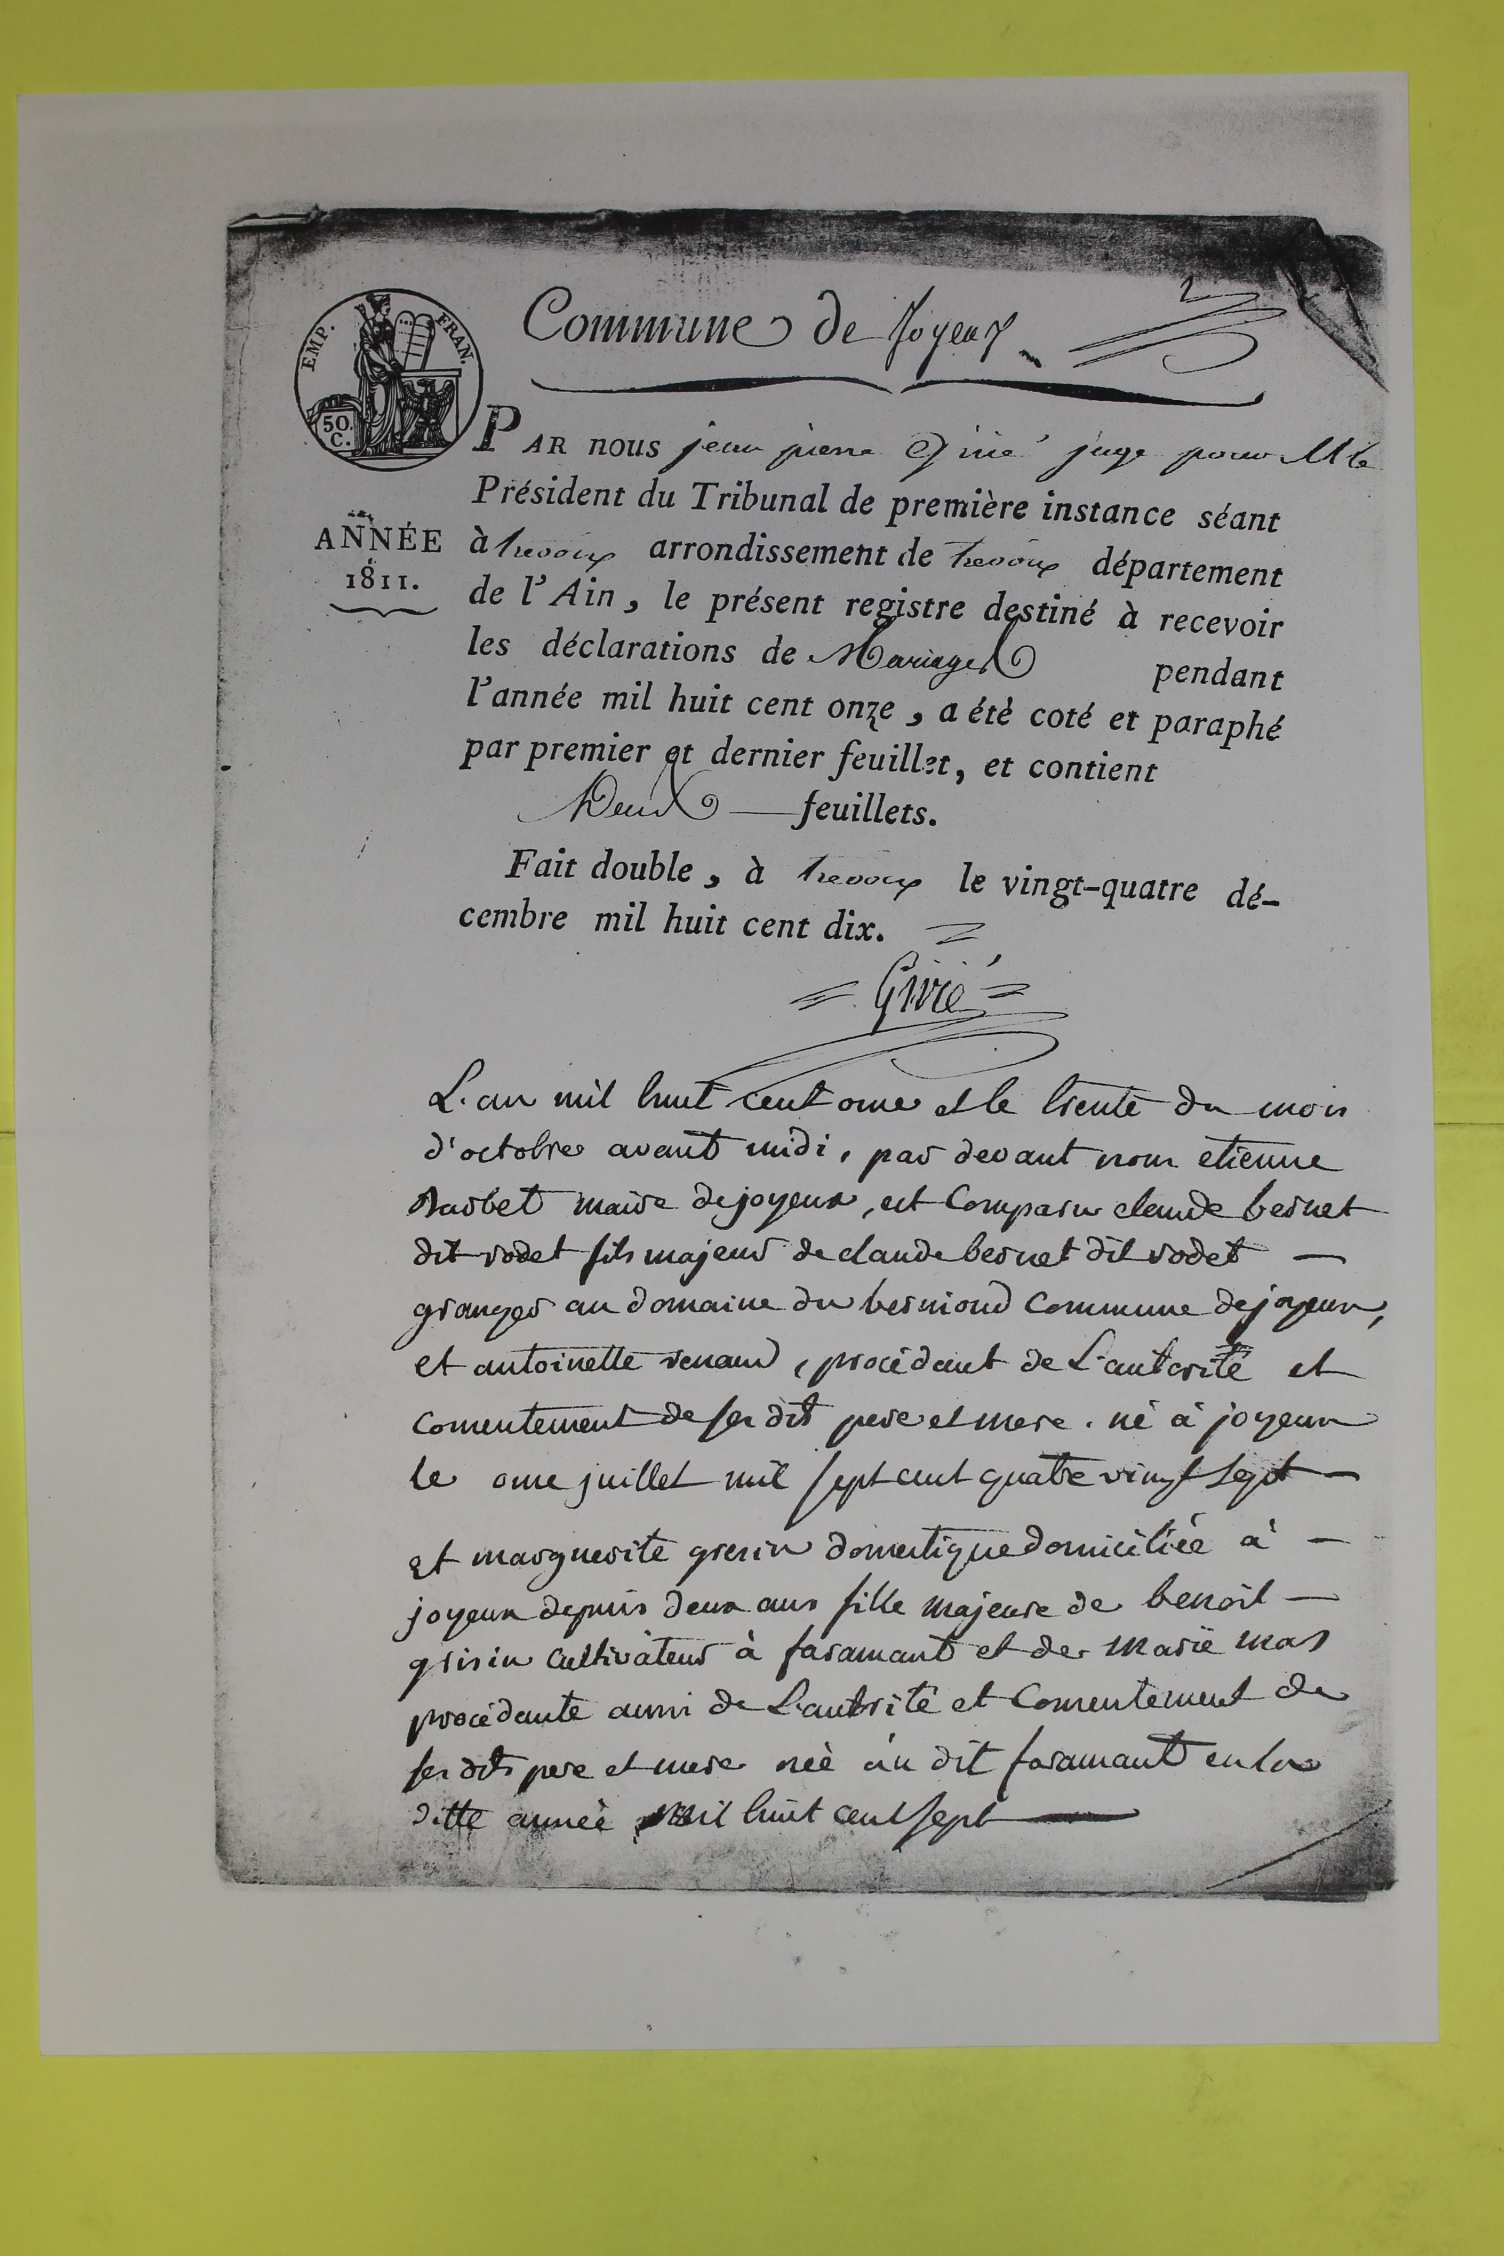 Commune de Joyeux
EMP. FRAN.
50.
C.
PAR nous jean pierre Givié juge pour M le
Président du Tribunal de première instance séant
ANNÉE
1811.
à trevoux arrondissement de trevoux département
de l'Ain, le présent registre destiné à recevoir
les déclarations de Mariages pendant
l'année mil huit cent onze, a étè coté et paraphé
par premier et dernier feuillet, et contient
Deux feuillets.
Fait double, à trevoux le vingt-quatre dé-
cembre mil huit cent dix.
Givié
L'an mil huit cent onze et le trente du mois
d'octobre avant midi, par devant nous etienne
Barbet maire de joyeux, est Comparu claude bernet
dit rodet fils majeur de claude bernet dit rodet —
granger au domaine du berniond Commune de joyeux,
et antoinette renaud, procédant de L'autorité et
Consentement de ses dits pere et mere. né à joyeux
le onze juillet mil sept cent quatre vingt sept —
et marguerite grisin domestique domiciliée à —
joyeux depuis deux ans fille majeure de benoit —
grisin cultivateur à faramant et de Marie mas
procédante aussi de L'autorité et Consentement de
ses dits pere et mere née au dit faramant en la
ditte année mil huit cent sept —